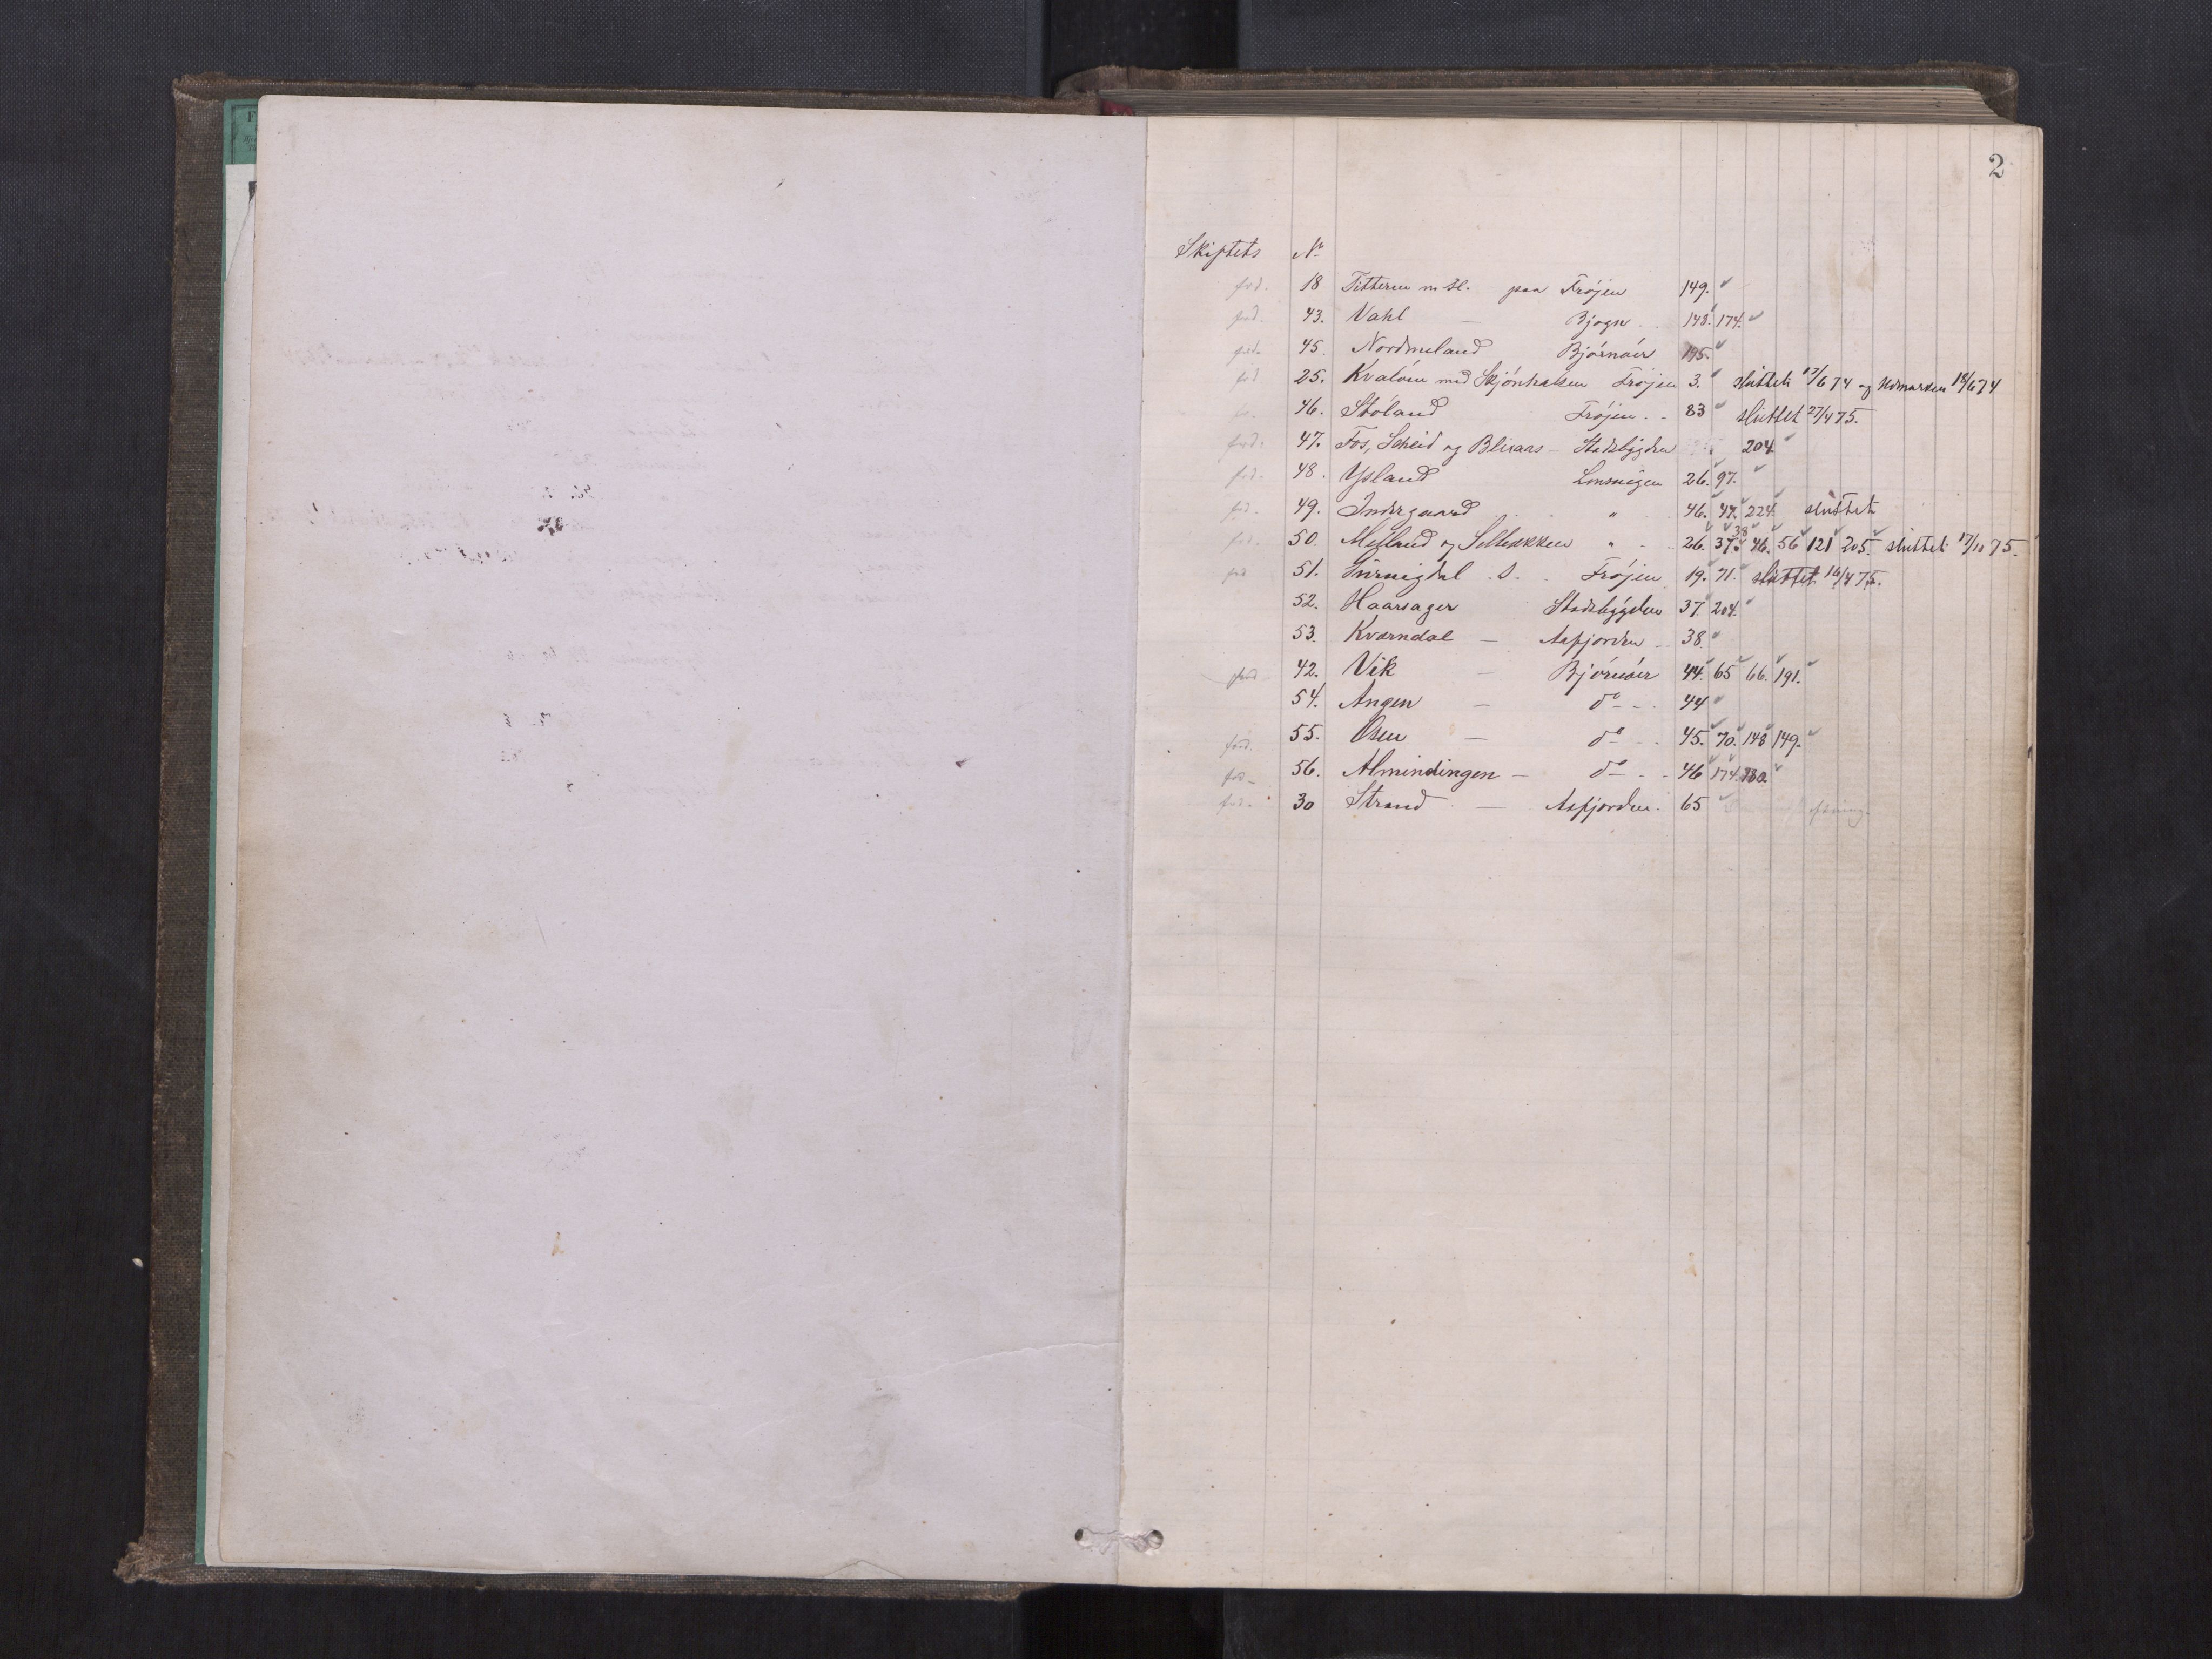 2
Skiftets No
18 Titteren m fl. paa Frøjen 149.
43. Vahl — Bjugn 148. 174.
45. Nordmeland Bjørnøer 195.
25. Kvaløen med Skjønhalsen Frøjen 3. sluttet 17/6 74 og Udmarken 18/6 74
46. Støland Frøjen 83 sluttet 27/4 75.
47. Fos, Scheid og Blixaas — Stadsbygden 204
48. Ysland Lensvigen 26. 97.
49. Indergaard " 46. 47. 224. sluttet
50. Melland og Selbækken " 26. 37. 38 46. 56 121 205. sluttet 17/10 75.
51. S. Frøjen 19. 71. sluttet 16/4 75.
52. Haarsager Stadsbygden 37. 204.
53. Kværndal — Aafjorden 38.
ford 42. Vik — Bjørnøer 44. 65 66. 191.
54. Angen — do 44
ford. 55. Osen — do 45. 70. 148 149.
56. Almindingen — do 46 174. 180.
30 Strand — Aafjorden. 65